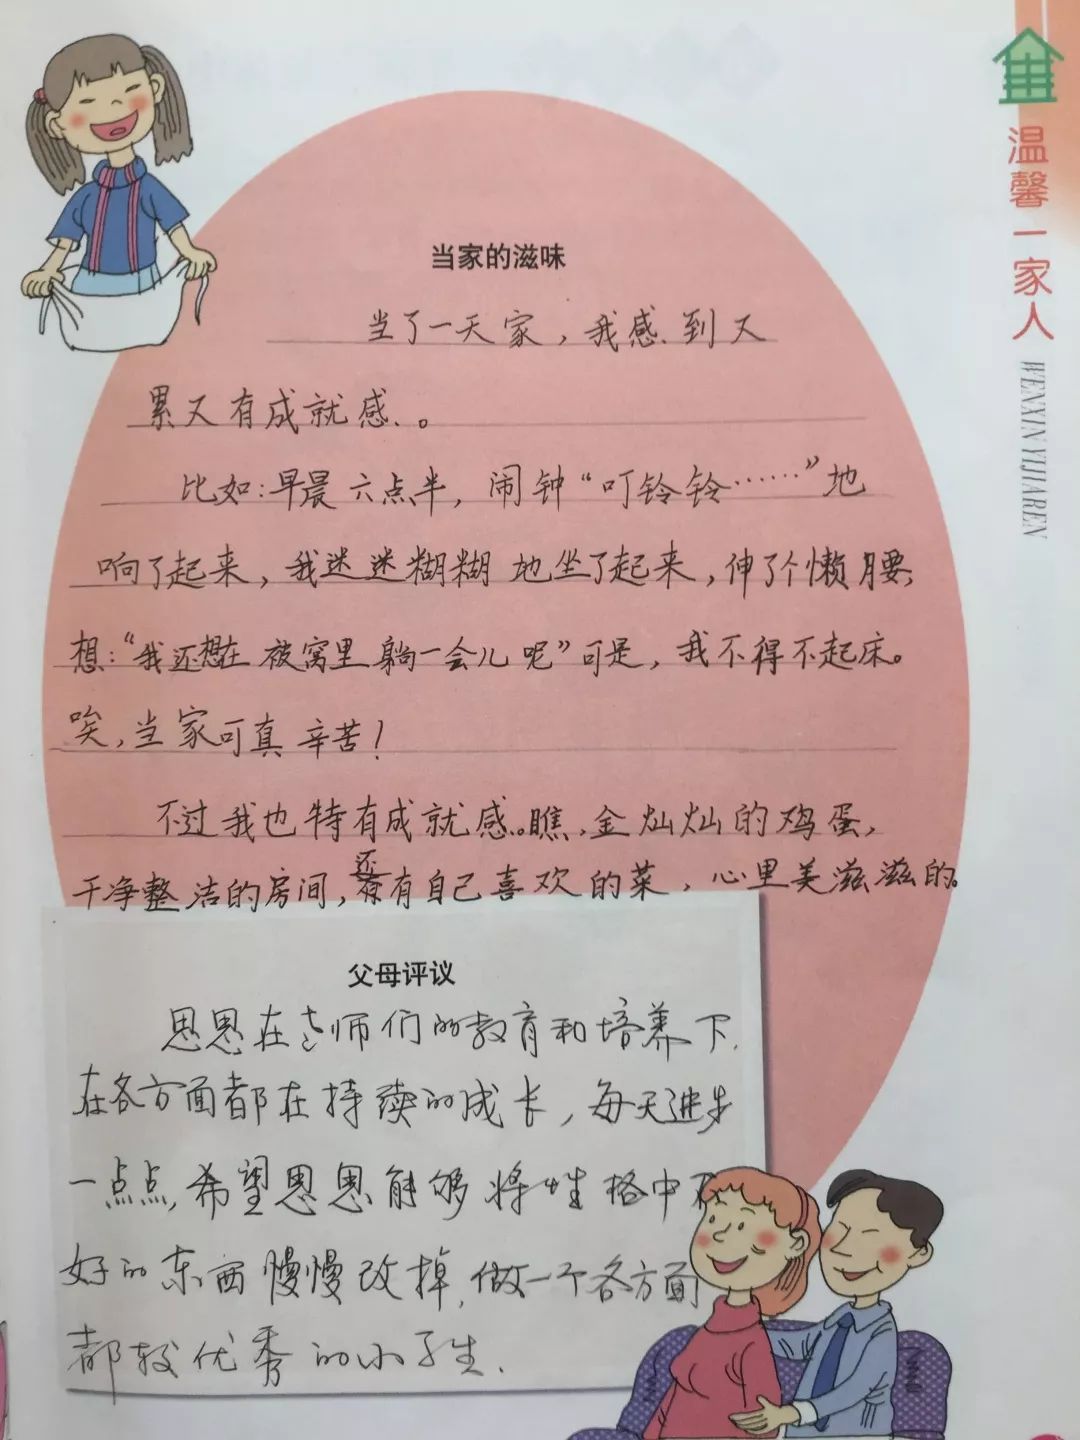 温馨一家人
WENXIN YIJIAREN
当家的滋味
当了一天家，我感到又
累又有成就感。
比如：早晨六点半，闹钟“叮铃铃……”地
响了起来，我迷迷糊糊地坐了起来，伸了个懒腰，
想：“我还想在被窝里躺一会儿呢”可是，我不得不起床。
唉，当家可真辛苦！
不过我也特有成就感。瞧，金灿灿的鸡蛋，
干净整洁的房间，还有自己喜欢的菜，心里美滋滋的。
父母评议
思思在老师们的教育和培养下，
在各方面都在持续的成长，每天进步
一点点，希望思思能够将性格中不
好的东西慢慢改掉，做一个各方面
都较优秀的小学生.